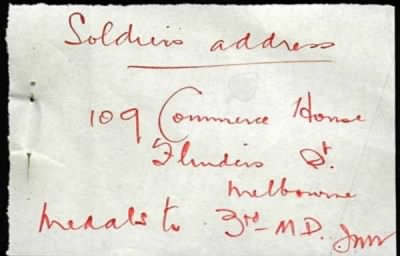 Soldiers address
109 Commerce House
Flinders St.
Melbourne
Medals to 3rd M.D.